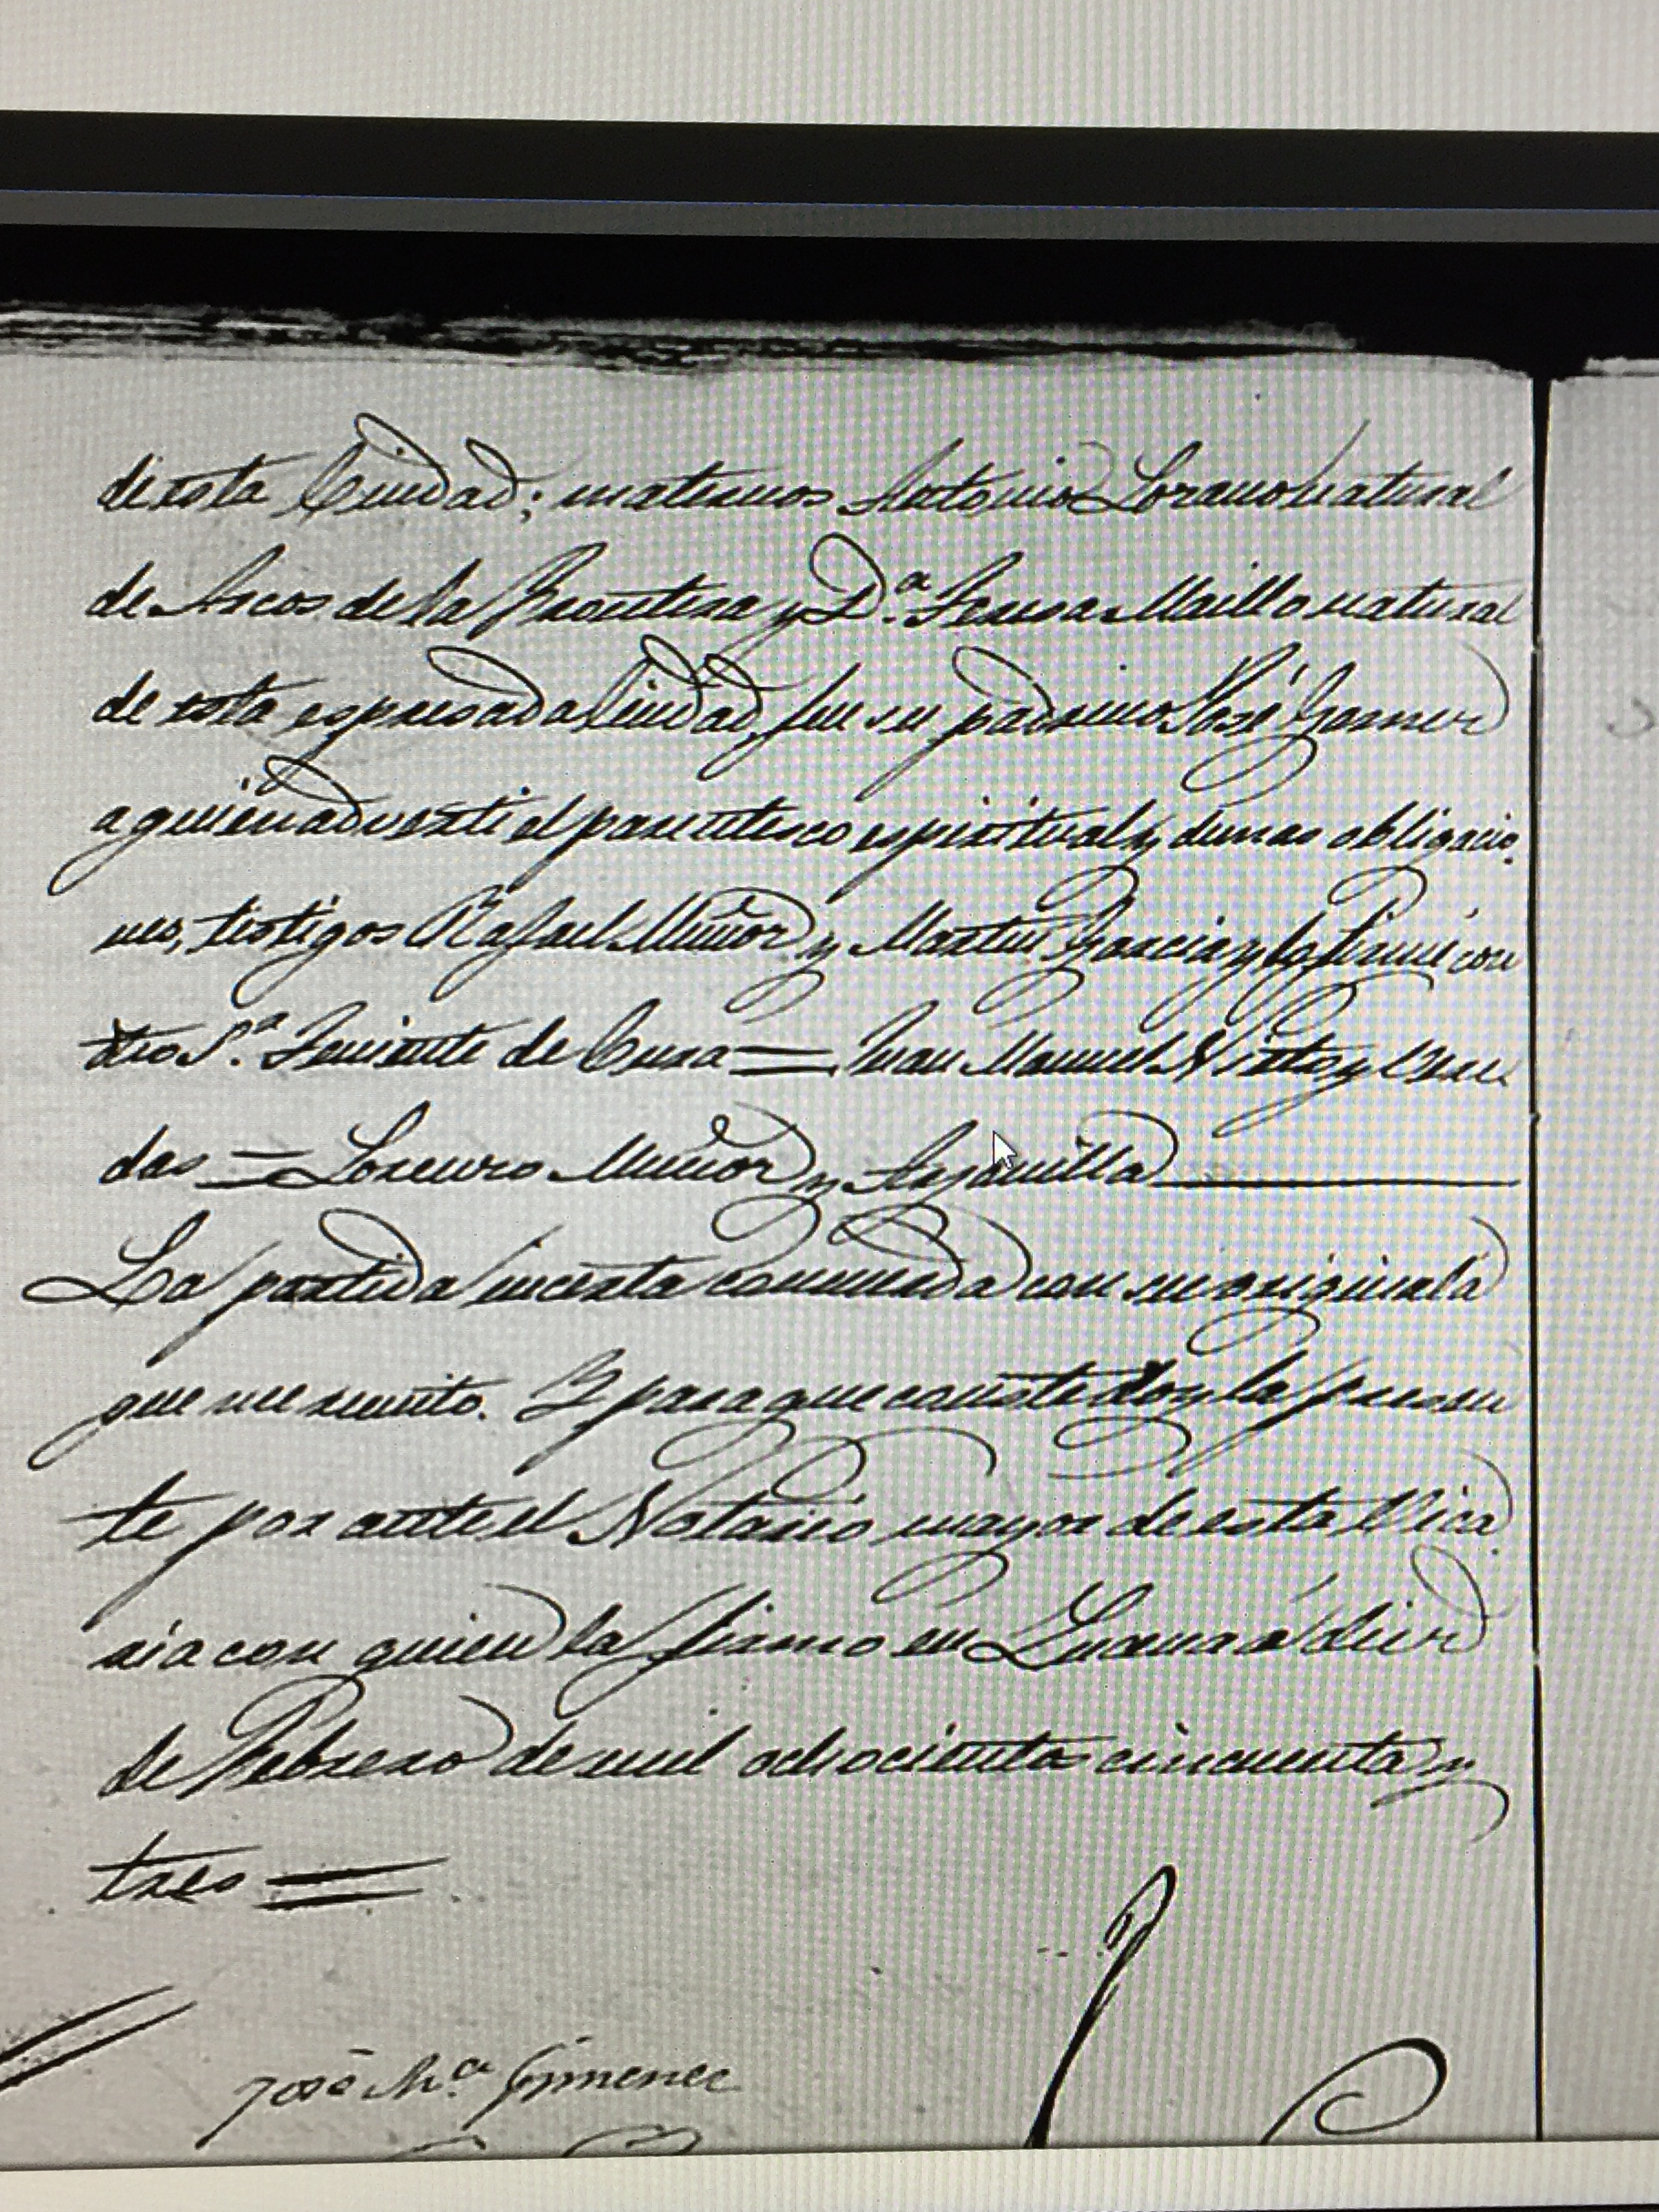 de esta Ciudad; maternos Antonio Lozano natural
de Arcos de la Frontera y D.ª Teresa Maillo natural
de esta espresada Ciudad, fue su padrino José Gomez
a quien adverti el parentesco espiritual y demas obligacio
nes, testigos Rafael Muñoz y Martin Garcia y lo firmé con
dho S.ʳ Teniente de Cura = Juan Manuel Nieto y
das = Lorenzo Muñoz y Arjonilla
La partida incerta comcuerda con su original a
que me remito. Y para que conste doy la presen
te por ante el Notario mayor de esta Vica
ria con quien la firmo en Lucena á diez
de Febrero de mil ochocientos cincuenta y
tres =
José M.ª Gimenez